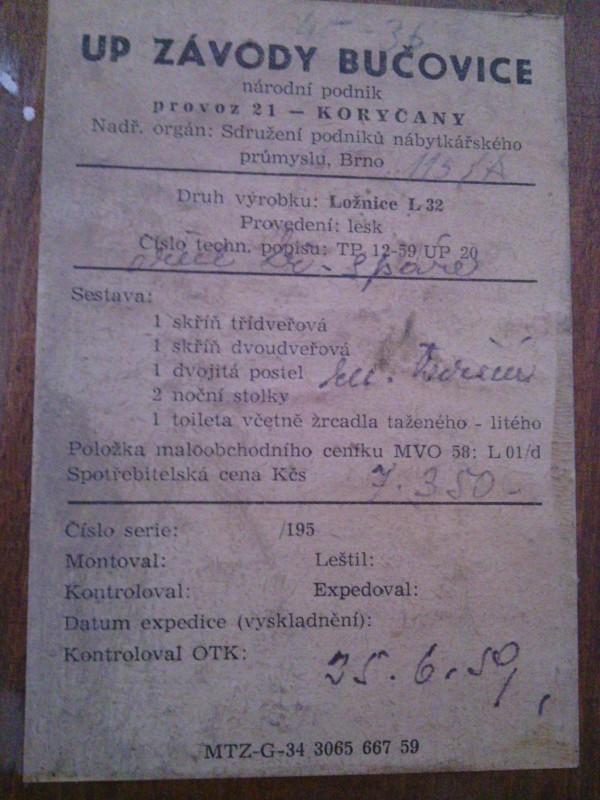 UP ZÁVODY BUČOVICE
národní podnik
provoz 21 — KORYČANY
Nadř. orgán: Sdružení podniků nábytkářského
průmyslu, Brno
Druh výrobku: Ložnice L 32
Provedení: lesk
Číslo techn. popisu: TP 12-59 UP 20
Sestava:
1 skříň třídveřová
1 skříň dvoudveřová
1 dvojitá postel
2 noční stolky
1 toileta včetně zrcadla taženého - litého
Položka maloobchodního ceníku MVO 58: L 01/d
Spotřebitelská cena Kčs 7.350-
Číslo serie: /195
Montoval: Leštil:
Kontroloval: Expedoval:
Datum expedice (vyskladnění):
Kontroloval OTK: 25.6.59
MTZ-G-34 3065 667 59